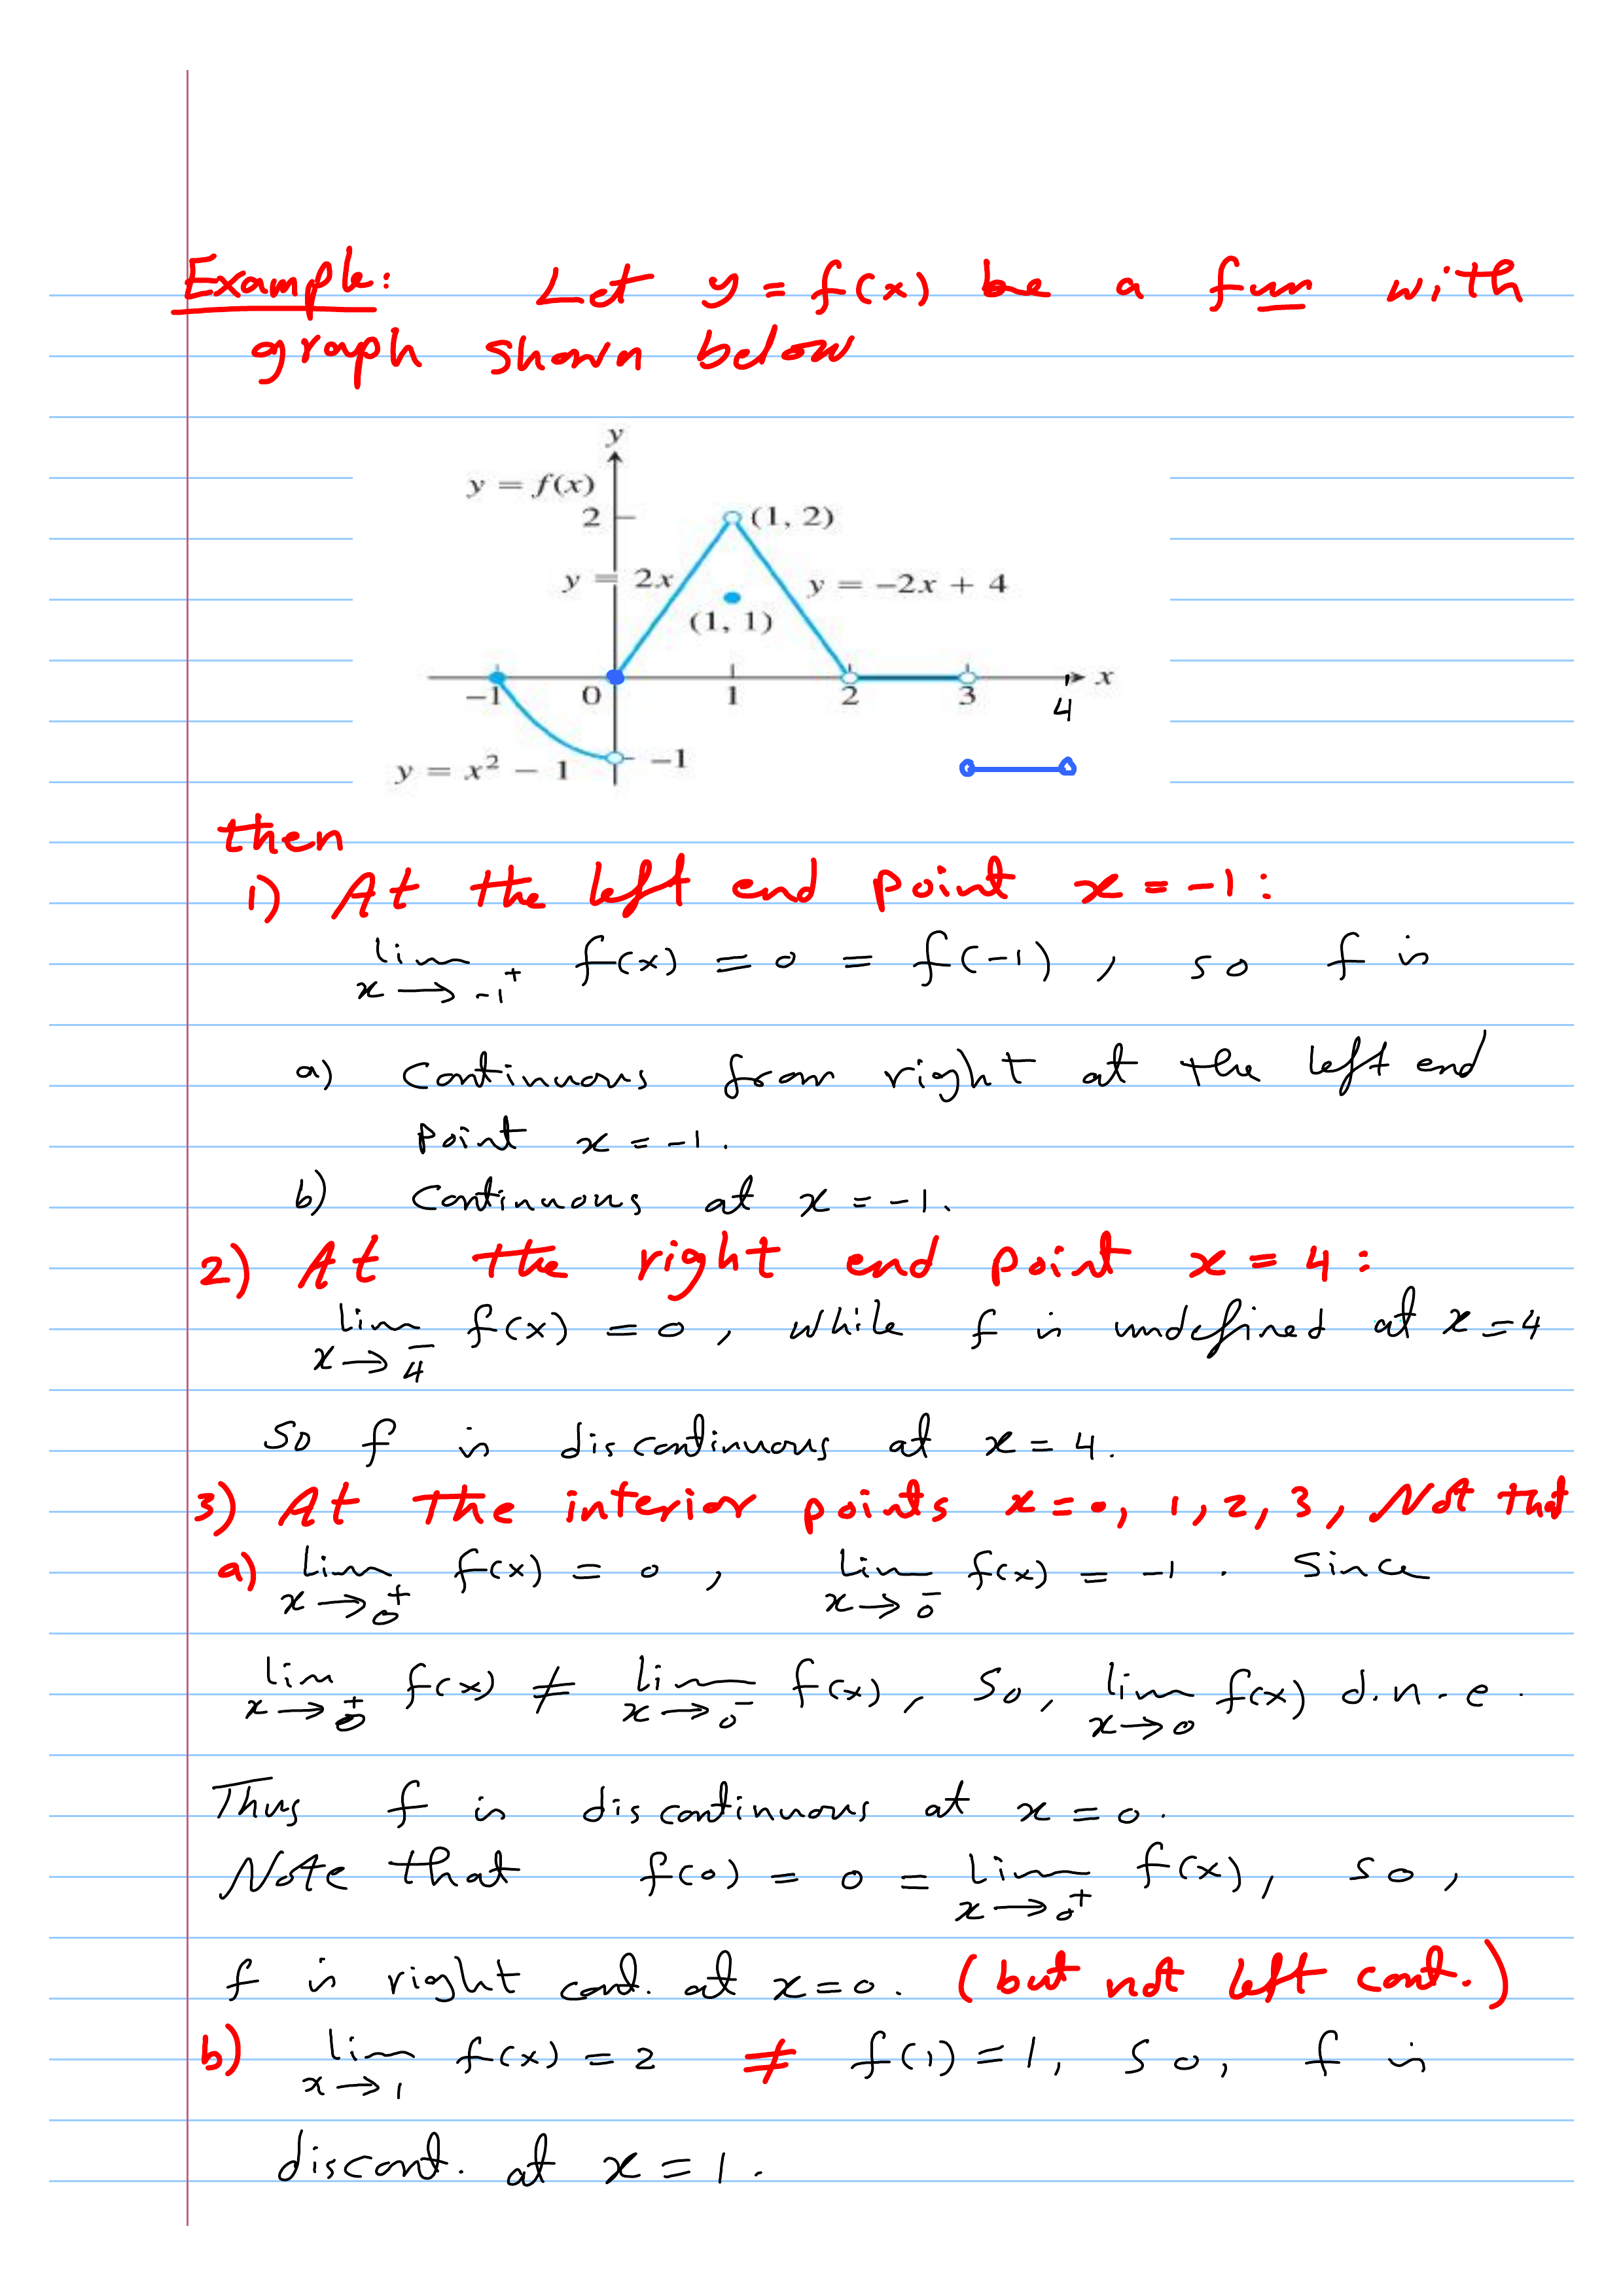 Example: Let y = f(x) be a fun with
graph shown below
y
y = f(x)
2
(1, 2)
y = 2x
y = −2x + 4
(1, 1)
−1 0 1 2 3 4 x
y = x² − 1
−1
then
1) At the left end point x = -1:
lim x→-1⁺ f(x) = 0 = f(-1), so f is
a) Continuous from right at the left end
point x = -1.
b) Continuous at x = -1.
2) At the right end point x = 4:
lim x→4⁻ f(x) = 0, while f is undefined at x = 4
So f is discontinuous at x = 4.
3) At the interior points x = 0, 1, 2, 3, Not that
a) lim x→0⁺ f(x) = 0, lim x→0⁻ f(x) = -1. Since
lim x→0⁺ f(x) ≠ lim x→0⁻ f(x), So, lim x→0 f(x) d.n.e.
Thus f is discontinuous at x = 0.
Note that f(0) = 0 = lim x→0⁺ f(x), so,
f is right cont. at x = 0. (but not left cont.)
b) lim x→1 f(x) = 2 ≠ f(1) = 1, so, f is
discont. at x = 1.